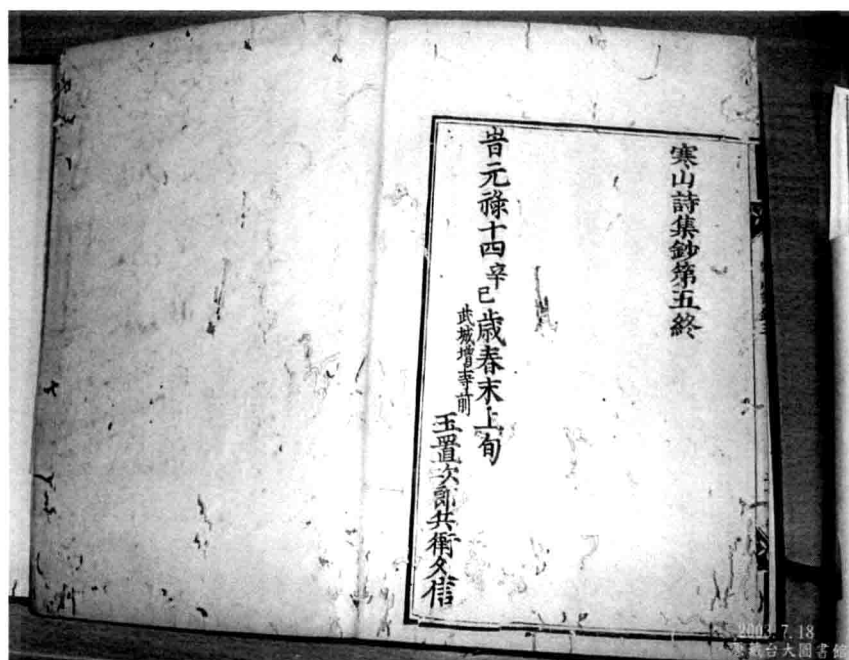 寒山詩集鈔第五終
旹元祿十四辛巳歲春末上旬
武城増寺前
玉置次郎兵衛久信
2003.7.18
總藏台大圖書館